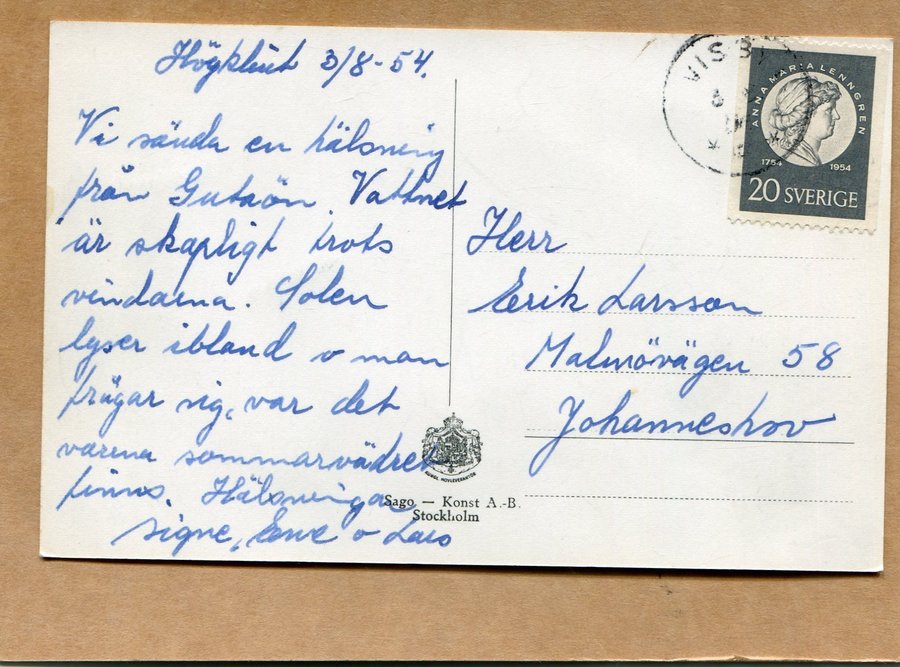 Högklint 3/8-54.
Vi sända en hälsning
från Gutaön. Vattnet
är skapligt trots
vindarna. Solen
lyser ibland o man
frågar sig, var det
varma sommarvädret
finns. Hälsningar
Signe, Ewe o Lars
VISBY
ANNA MARIA LENNGREN
1754 1954
20 SVERIGE
Herr
Erik Larsson
Malmövägen 58
Johanneshov
KUNGL. HOVLEVERANTÖR
Sago — Konst A.-B.
Stockholm